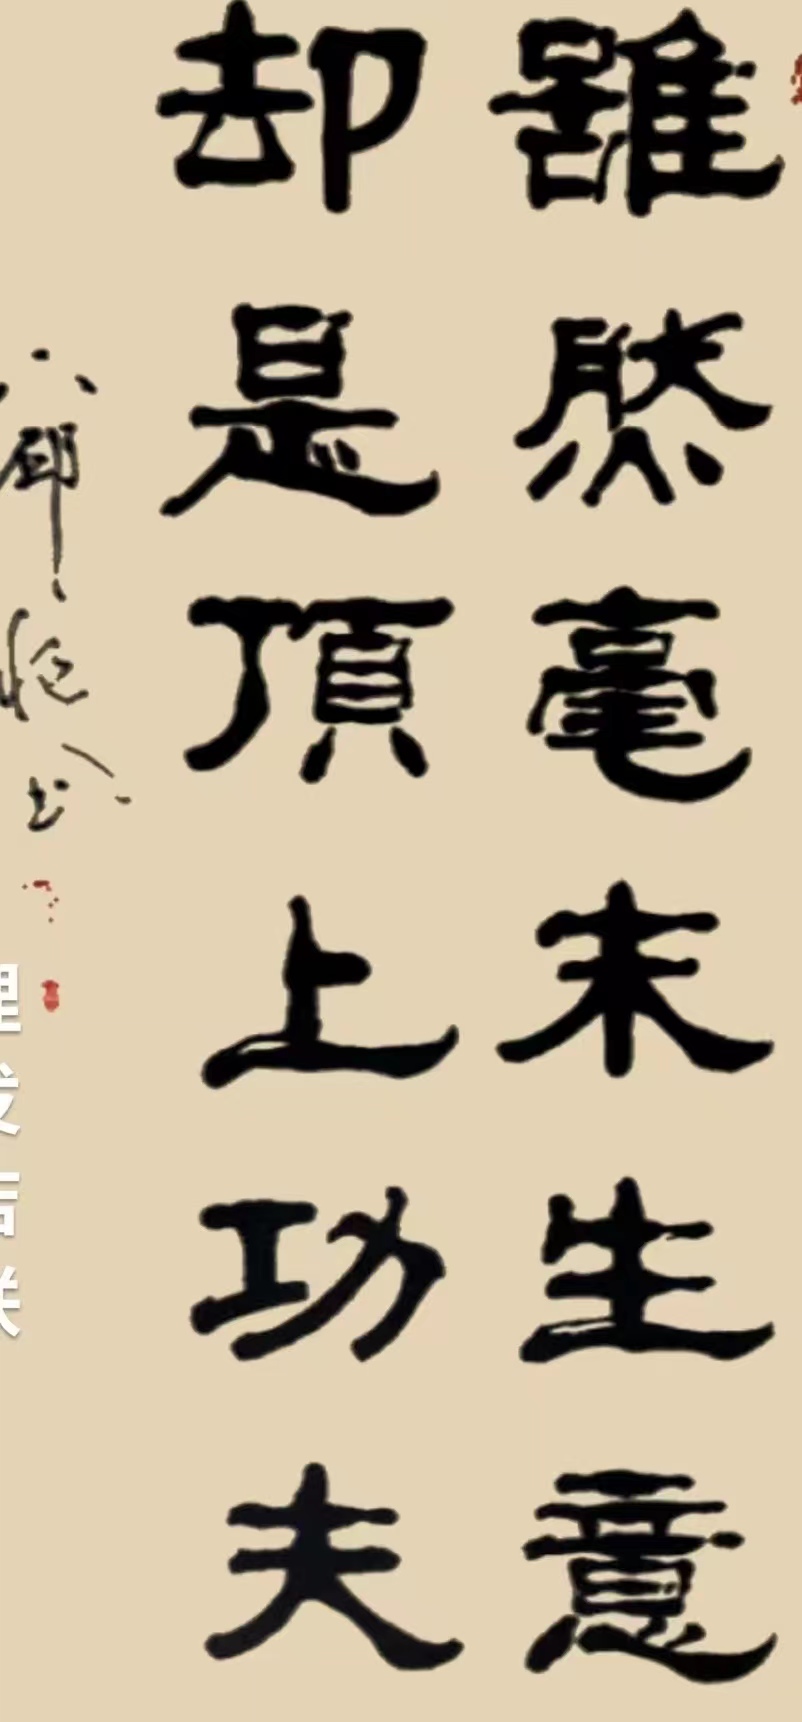 雖然毫末生意
却是頂上功夫